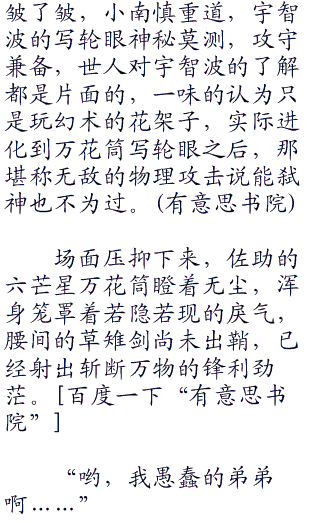 皱了皱，小南慎重道，宇智
波的写轮眼神秘莫测，攻守
兼备，世人对宇智波的了解
都是片面的，一味的认为只
是玩幻术的花架子，实际进
化到万花筒写轮眼之后，那
堪称无敌的物理攻击说能弑
神也不为过。(有意思书院)
场面压抑下来，佐助的
六芒星万花筒瞪着无尘，浑
身笼罩着若隐若现的戾气，
腰间的草雉剑尚未出鞘，已
经射出斩断万物的锋利劲
芒。[百度一下“有意思书
院”]
“哟，我愚蠢的弟弟
啊……”